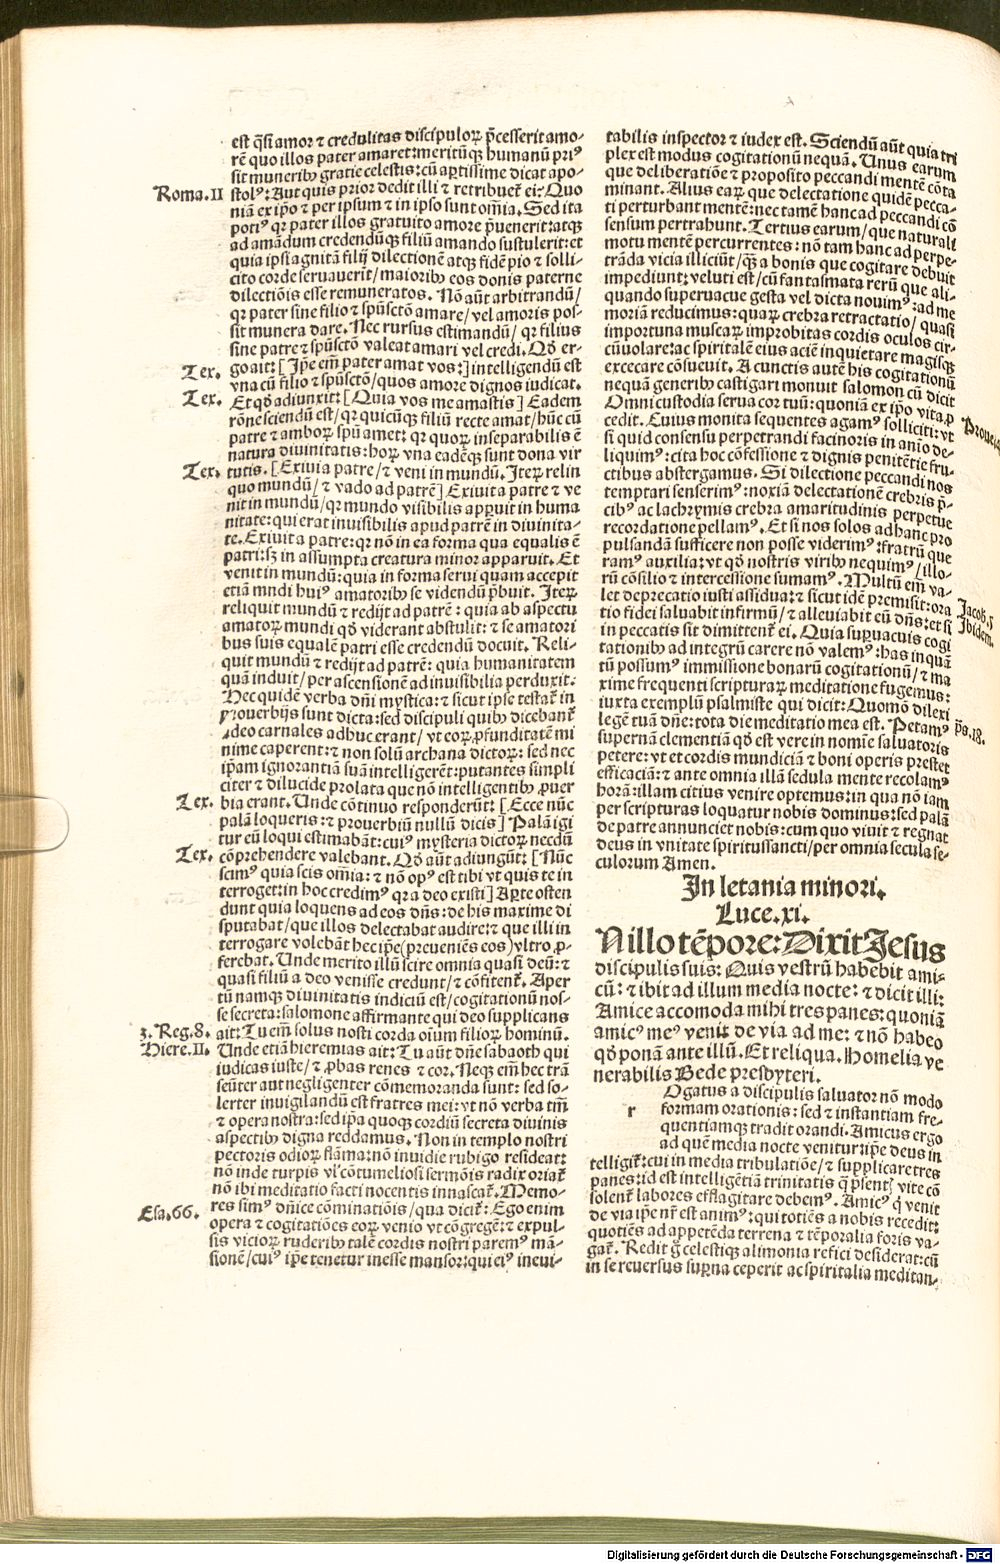 est q̃si amor ⁊ credulitas discipuloꝝ p̃cesserit amo-
rẽ quo illos pater amaret: meritũqꝫ humanũ priꝰ
sit muneribꝰ gratie celestis: cũ aptissime dicat apo-
Roma.II
stolꝰ: Aut quis prior dedit illi ⁊ retribuet̃ ei: Quo
niã ex ip̃o ⁊ per ipsum ⁊ in ipso sunt om̃ia. Sed ita
potiꝰ qꝛ pater illos gratuito amore p̃uenerit: atqꝫ
ad amãdum credendũqꝫ filiũ amando sustulerit: et
quia ipsi agnitã filij dilectionẽ atqꝫ fidẽ pio ⁊ solli-
cito corde seruauerit/ maioribꝰ eos donis paterne
dilectiõis esse remuneratos. Nõ aũt arbitrandũ/
qꝛ pater sine filio ⁊ spũsctõ amare/ vel amoris pos-
sit munera dare. Nec rursus estimandũ/ qꝛ filius
sine patre ⁊ spũsctõ valeat amari vel credi. Qđ er-
Tex.
go ait: [Ip̃e em̃ pater amat vos:] intelligendũ est
vna cũ filio ⁊ spũsctõ/ quos amore dignos iudicat.
Tex.
Et qđ adiunxit: [Quia vos me amastis] Eadem
rõne sciendũ est/ qꝛ quicũqꝫ filiũ recte amat/ hũc cũ
patre ⁊ amboꝝ spũ amet: qꝛ quoꝝ inseparabilis ẽ
natura diuinitatis: hoꝝ vna eadẽqꝫ sunt dona vir
Tex.
tutis. [Exiui a patre/ ⁊ veni in mundũ. Iteꝝ relin
quo mundũ/ ⁊ vado ad patrẽ] Exiuit a patre ⁊ ve
nit in mundũ/ qꝛ mundo visibilis apparuit in huma
nitate: qui erat inuisibilis apud patrẽ in diuinita-
te. Exiuit a patre: qꝛ nõ in ea forma qua equalis ẽ
patri: sꝫ in assumpta creatura minor apparuit. Et
venit in mundũ: quia in forma serui quam accepit
etiã mũdi huiꝰ amatoribꝰ se videndũ p̃buit. Iteꝝ
reliquit mundũ ⁊ redijt ad patrẽ: quia ab aspectu
amatoꝝ mundi qđ viderant abstulit: ⁊ se amatori
bus suis equalẽ patri esse credendũ docuit. Reli-
quit mundũ ⁊ redijt ad patrẽ: quia humanitatem
quã induit/ per ascensionẽ ad inuisibilia perduxit.
Hec quidẽ verba dñi mystica: ⁊ sicut ipse testat̃ in
prouerbijs sunt dicta: sed discipuli quibꝰ dicebant̃
adeo carnales adhuc erant/ vt eoꝝ ꝓfunditatẽ mi
nime caperent: ⁊ non solũ archana dictoꝝ: sed nec
ip̃am ignorantiã suã intelligerẽt: putantes simpli
citer ⁊ dilucide prolata que nõ intelligentibꝰ ꝓuer
Tex.
bia erant. Unde cõtinuo responderũt: [Ecce nũc
palã loqueris: ⁊ prouerbiũ nullũ dicis] Palã igi
tur eũ loqui estimabãt: cuiꝰ mysteria dictoꝝ necdũ
Tex.
cõprehendere valebant. Qđ aũt adiungũt: [Nũc
scimꝰ quia scis om̃ia: ⁊ nõ opꝰ est tibi vt quis te in
terroget: in hoc credimꝰ qꝛ a deo existi] Aꝑte osten
dunt quia loquens ad eos dñs: de his maxime di
sputabat/ que illos delectabat audire: ⁊ que illi in
terrogare volebãt hec ip̃e (preueniẽs eos) vltro ꝓ-
ferebat. Unde merito illũ scire omnia quasi deũ: ⁊
quasi filiũ a deo venisse credunt/ ⁊ cõfitent̃. Aper
tũ namqꝫ diuinitatis indiciũ est/ cogitationũ nos-
se secreta: salomone affirmante qui deo supplicans
3. Reg.8.
ait: Tu em̃ solus nosti corda oĩum filioꝝ hominũ.
Hiere.II.
Unde etiã hieremias ait: Tu aũt dñe sabaoth qui
iudicas iuste/ ⁊ ꝓbas renes ⁊ cor. Neqꝫ em̃ hec trã
seũter aut negligenter cõmemoranda sunt: sed so-
lerter inuigilandũ est fratres mei: vt nõ verba tm̃
⁊ opera nostra: sed ip̃a quoqꝫ cordiũ secreta diuinis
aspectibꝰ digna reddamus. Non in templo nostri
pectoris odioꝝ flãma: nõ inuidie rubigo resideat:
nõ inde turpis vľ cõtumeliosi sermõis radix oriat̃
nõ ibi meditatio facti nocentis innascat̃. Memo-
Esa.66.
res simꝰ dñice cõminatiõis/ qua dicit̃: Ego enim
opera ⁊ cogitatiões eoꝝ venio vt cõgregẽ: ⁊ expul-
sis vicioꝝ ruderibꝰ talẽ cordis nostri paremꝰ mã-
sionẽ/ cuiꝰ ip̃e tenetur inesse mansor: qui eiꝰ ineui-
tabilis inspector ⁊ iudex est. Sciendũ aũt quia tri
plex est modus cogitationũ nequã. Unus earum
que deliberatiõe ⁊ proposito peccandi mentẽ cõta
minant. Alius eaꝝ que delectatione quidẽ pecca-
ti perturbant mentẽ: nec tamẽ hanc ad peccandi cõ
sensum pertrahunt. Tertius earum/ que naturali
motu mentẽ percurrentes: nõ tam hanc ad perpe-
trãda vicia illiciũt/ q̃ꝫ a bonis que cogitare debuit
impediunt: veluti est/ cũ fantasmata rerũ que ali-
quando superuacue gesta vel dicta nouimꝰ: ad me
moriã reducimus: quaꝝ crebra retractatio/ quasi
importuna muscaꝝ improbitas cordis oculos cir-
cũuolare: ac spiritalẽ eius aciẽ inquietare magisqꝫ
excecare cõsueuit. A cunctis autẽ his cogitationũ
nequã generibꝰ castigari monuit salomon cũ dicit
Omni custodia serua cor tuũ: quoniã ex ip̃o vita ꝓ
Prouer.4
cedit. Cuius monita sequentes agamꝰ solliciti: vt
si quid consensu perpetrandi facinoris in anĩo de-
liquimꝰ: cita hoc cõfessione ⁊ dignis penitẽtie fru-
ctibus abstergamus. Si dilectione peccandi nos
temptari senserimꝰ: noxiã delectationẽ crebris p̃-
cibꝰ ac lachrymis crebra amaritudinis perpetue
recordatione pellamꝰ. Et si nos solos ad hanc pro
pulsandã sufficere non posse viderimꝰ: fratrũ que
ramꝰ auxilia: vt qđ nostris viribꝰ nequimꝰ/ illo-
rũ cõsilio ⁊ intercessione sumamꝰ. Multũ em̃ va-
Jacob.5
let deprecatio iusti assidua: ⁊ sicut idẽ premisit: ora
Ibidem.
tio fidei saluabit infirmũ/ ⁊ alleuiabit eũ dñs: et si
in peccatis sit dimittent̃ ei. Quia supuacuis cogi
tationibꝰ ad integrũ carere nõ valemꝰ: has inquã
tũ possumꝰ immissione bonarũ cogitationũ/ ⁊ ma
xime frequenti scripturaꝝ meditatione fugemus:
iuxta exemplũ psalmiste qui dicit: Quomõ dilexi
p̃s.18.
legẽ tuã dñe: tota die meditatio mea est. Petamꝰ
supernã clementiã qđ est vere in nomĩe saluatoris
petere: vt et cordis mundiciã ⁊ boni operis prestet
efficaciã: ⁊ ante omnia illã sedula mente recolamꝰ
horã: illam citius venire optemus: in qua nõ iam
per scripturas loquatur nobis dominus: sed palã
de patre annunciet nobis: cum quo viuit ⁊ regnat
deus in vnitate spiritussancti/ per omnia secula se-
culorum Amen.
In letania minori.
Luce.xi.
N illo tẽpore: Dixit Jesus
discipulis suis: Quis vestrũ habebit ami-
cũ: ⁊ ibit ad illum media nocte: ⁊ dicit illi:
Amice accomoda mihi tres panes: quoniã
amicꝰ meꝰ venit de via ad me: ⁊ nõ habeo
qđ ponã ante illũ. Et reliqua. Homelia ve
nerabilis Bede presbyteri.
r
Ogatus a discipulis saluator nõ modo
formam orationis: sed ⁊ instantiam fre-
quentiamqꝫ tradit orandi. Amicus ergo
ad quẽ media nocte venitur: ip̃e deus in
telligit̃: cui in media tribulatiõe/ ⁊ supplicare tres
panes: id est intelligẽtiã trinitatis q̃ p̃sent̃ vite cõ
solent̃ labores efflagitare debemꝰ. Amicꝰ q̃ venit
de via ip̃e nr̃ est animꝰ: qui totiẽs a nobis recedit:
quotiẽs ad appetẽda terrena ⁊ tẽporalia foris va-
gat̃. Redit g̃ celestiqꝫ alimonia refici desiderat: cũ
in se reuersus supna ceperit ac spiritalia meditan-
Digitalisierung gefördert durch die Deutsche Forschungsgemeinschaft - DFG